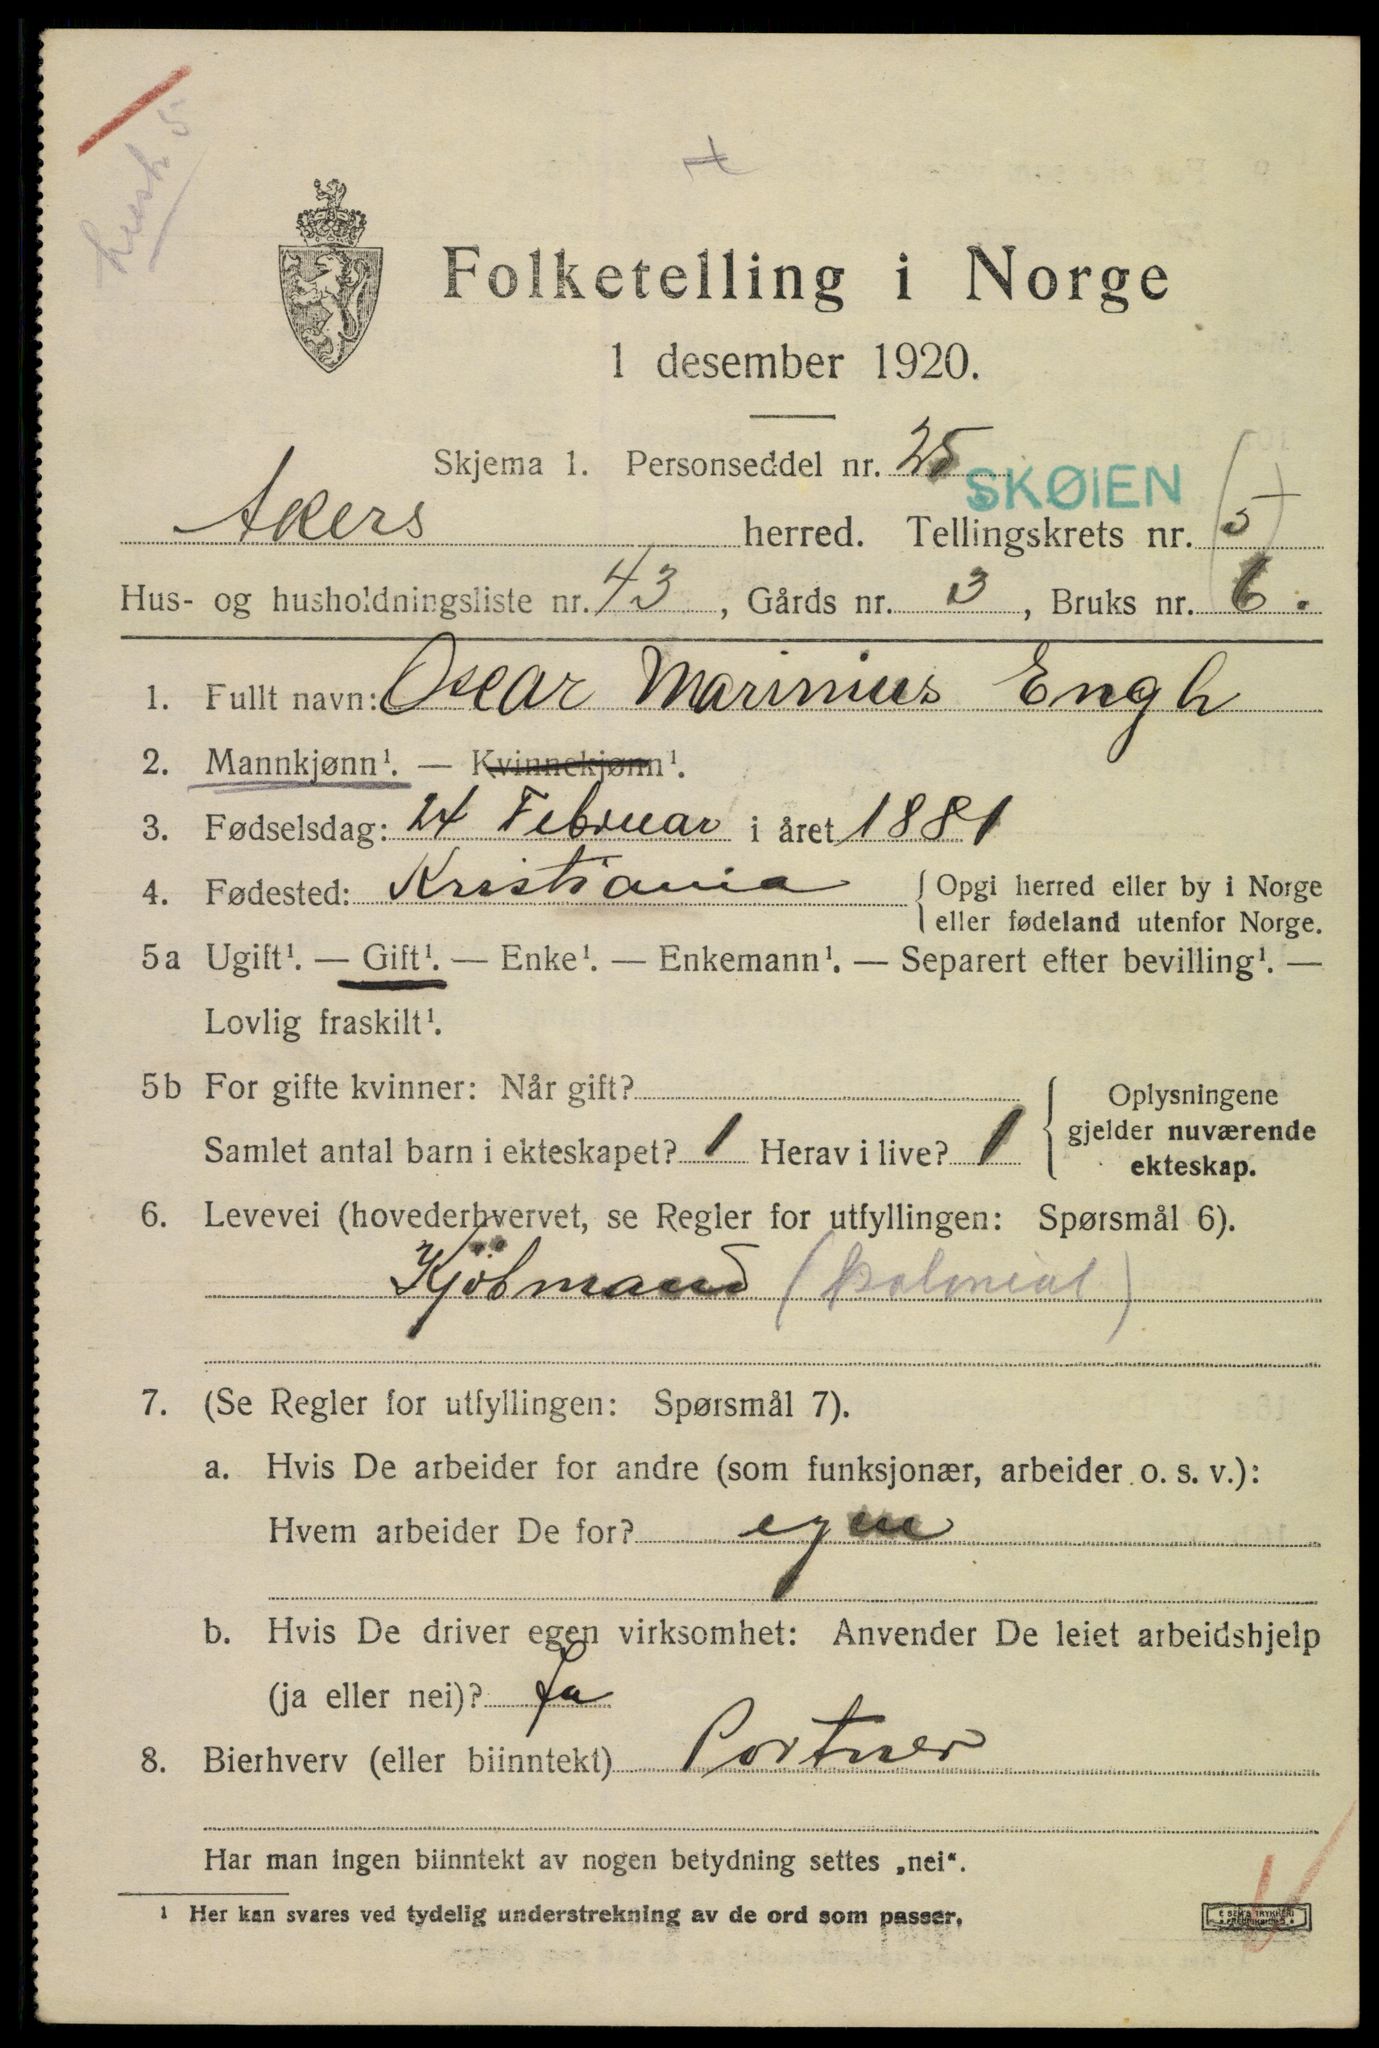 hush. 5
Folketelling i Norge
1 desember 1920.
Skjema 1. Personseddel nr. 25
SKØIEN
Akers herred. Tellingskrets nr. (5)
Hus- og husholdningsliste nr. 43, Gårds nr. 3, Bruks nr. 6.
1. Fullt navn: Oscar Marinius Engh
2. Mannkjønn¹. — Kvinnekjønn¹.
3. Fødselsdag: 24 Februar i året 1881
4. Fødested: Kristiania { Opgi herred eller by i Norge
eller fødeland utenfor Norge.
5a Ugift¹. — Gift¹. — Enke¹. — Enkemann¹. — Separert efter bevilling¹. —
Lovlig fraskilt¹.
5b For gifte kvinner: Når gift?
Samlet antal barn i ekteskapet? 1 Herav i live? 1
Oplysningene
gjelder nuværende
ekteskap.
6. Levevei (hovederhvervet, se Regler for utfyllingen: Spørsmål 6).
Kjöbmand (kolonial)
7. (Se Regler for utfyllingen: Spørsmål 7).
a. Hvis De arbeider for andre (som funksjonær, arbeider o. s. v.):
Hvem arbeider De for? egen
b. Hvis De driver egen virksomhet: Anvender De leiet arbeidshjelp
(ja eller nei)? Ja
8. Bierhverv (eller biinntekt) Portner
Har man ingen biinntekt av nogen betydning settes „nei“.
¹ Her kan svares ved tydelig understrekning av de ord som passer.